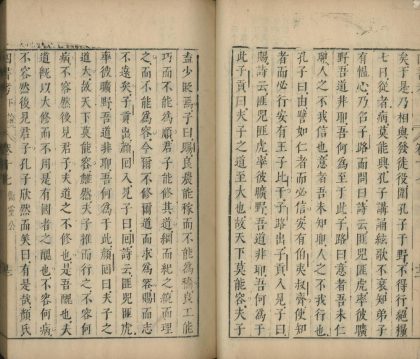 矣于是乃相與發徒役圍孔子于野不得行絕糧
七日從者病莫能興孔子講誦絃歌不衰知弟子
有慍心乃召子路而問曰詩云匪兕匪虎率彼曠
野吾道非耶吾何為至于此子路曰意者吾未仁
耶人之不我信也意者吾未知耶人之不我行也
孔子曰由譬如仁者而必信安有伯夷叔齊使知
者而必行安有王子比干子路出子貢入見子曰
賜詩云匪兕匪虎率彼曠野吾道非耶吾何為于
此子貢曰夫子之道至大也故天下莫能容夫子
盍少貶焉子曰賜良農能稼而不能為穡良工能
巧而不能為順君子能修其道綱而紀之統而理
之而不能為容今爾不修爾道而求為容賜而志
不遠矣子貢出顏回入見子曰回詩云匪兕匪虎
率彼曠野吾道非耶吾何為于此顏回曰夫子之
道大故天下莫能容雖然夫子推而行之不容何
病不容然後見君子夫道之不修也是吾醜也夫
道既以大修而不用是有國者之醜也不容何病
不容然後見君子孔子欣然而笑曰有是哉顏氏
四書考